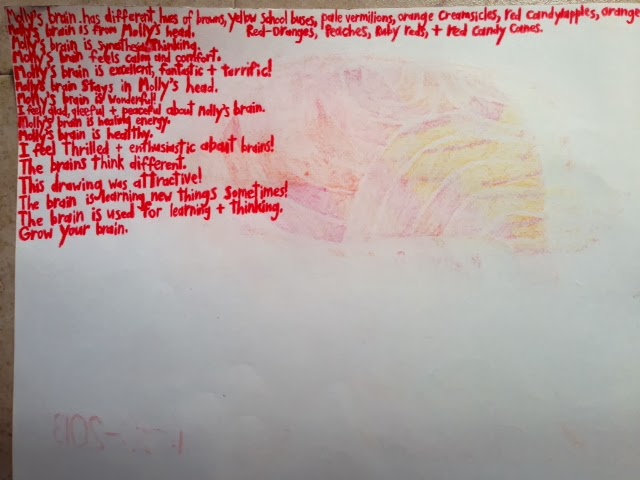 Molly's brain has different hues of browns, yellow school buses, pale vermilions, orange Creamsicles, Red Candy Apples, orange
Molly's brain is from Molly's head. Red-Oranges, Peaches, Ruby reds, + Red Candy Canes.
Molly's brain is synesthesia thinking.
Molly's brain feels calm and comfort.
Molly's brain is excellent, fantastic + terrific!
Molly's brain stays in Molly's head.
Molly's brain is wonderful!
I feel glad, gleeful + peaceful about Molly's brain.
Molly's brain is healing energy.
Molly's brain is healthy.
I feel Thrilled + enthusiastic about brains!
The brains think different.
This drawing was attractive!
The brain is learning new things Sometimes!
The brain is used for learning + thinking.
Grow Your brain.
2013